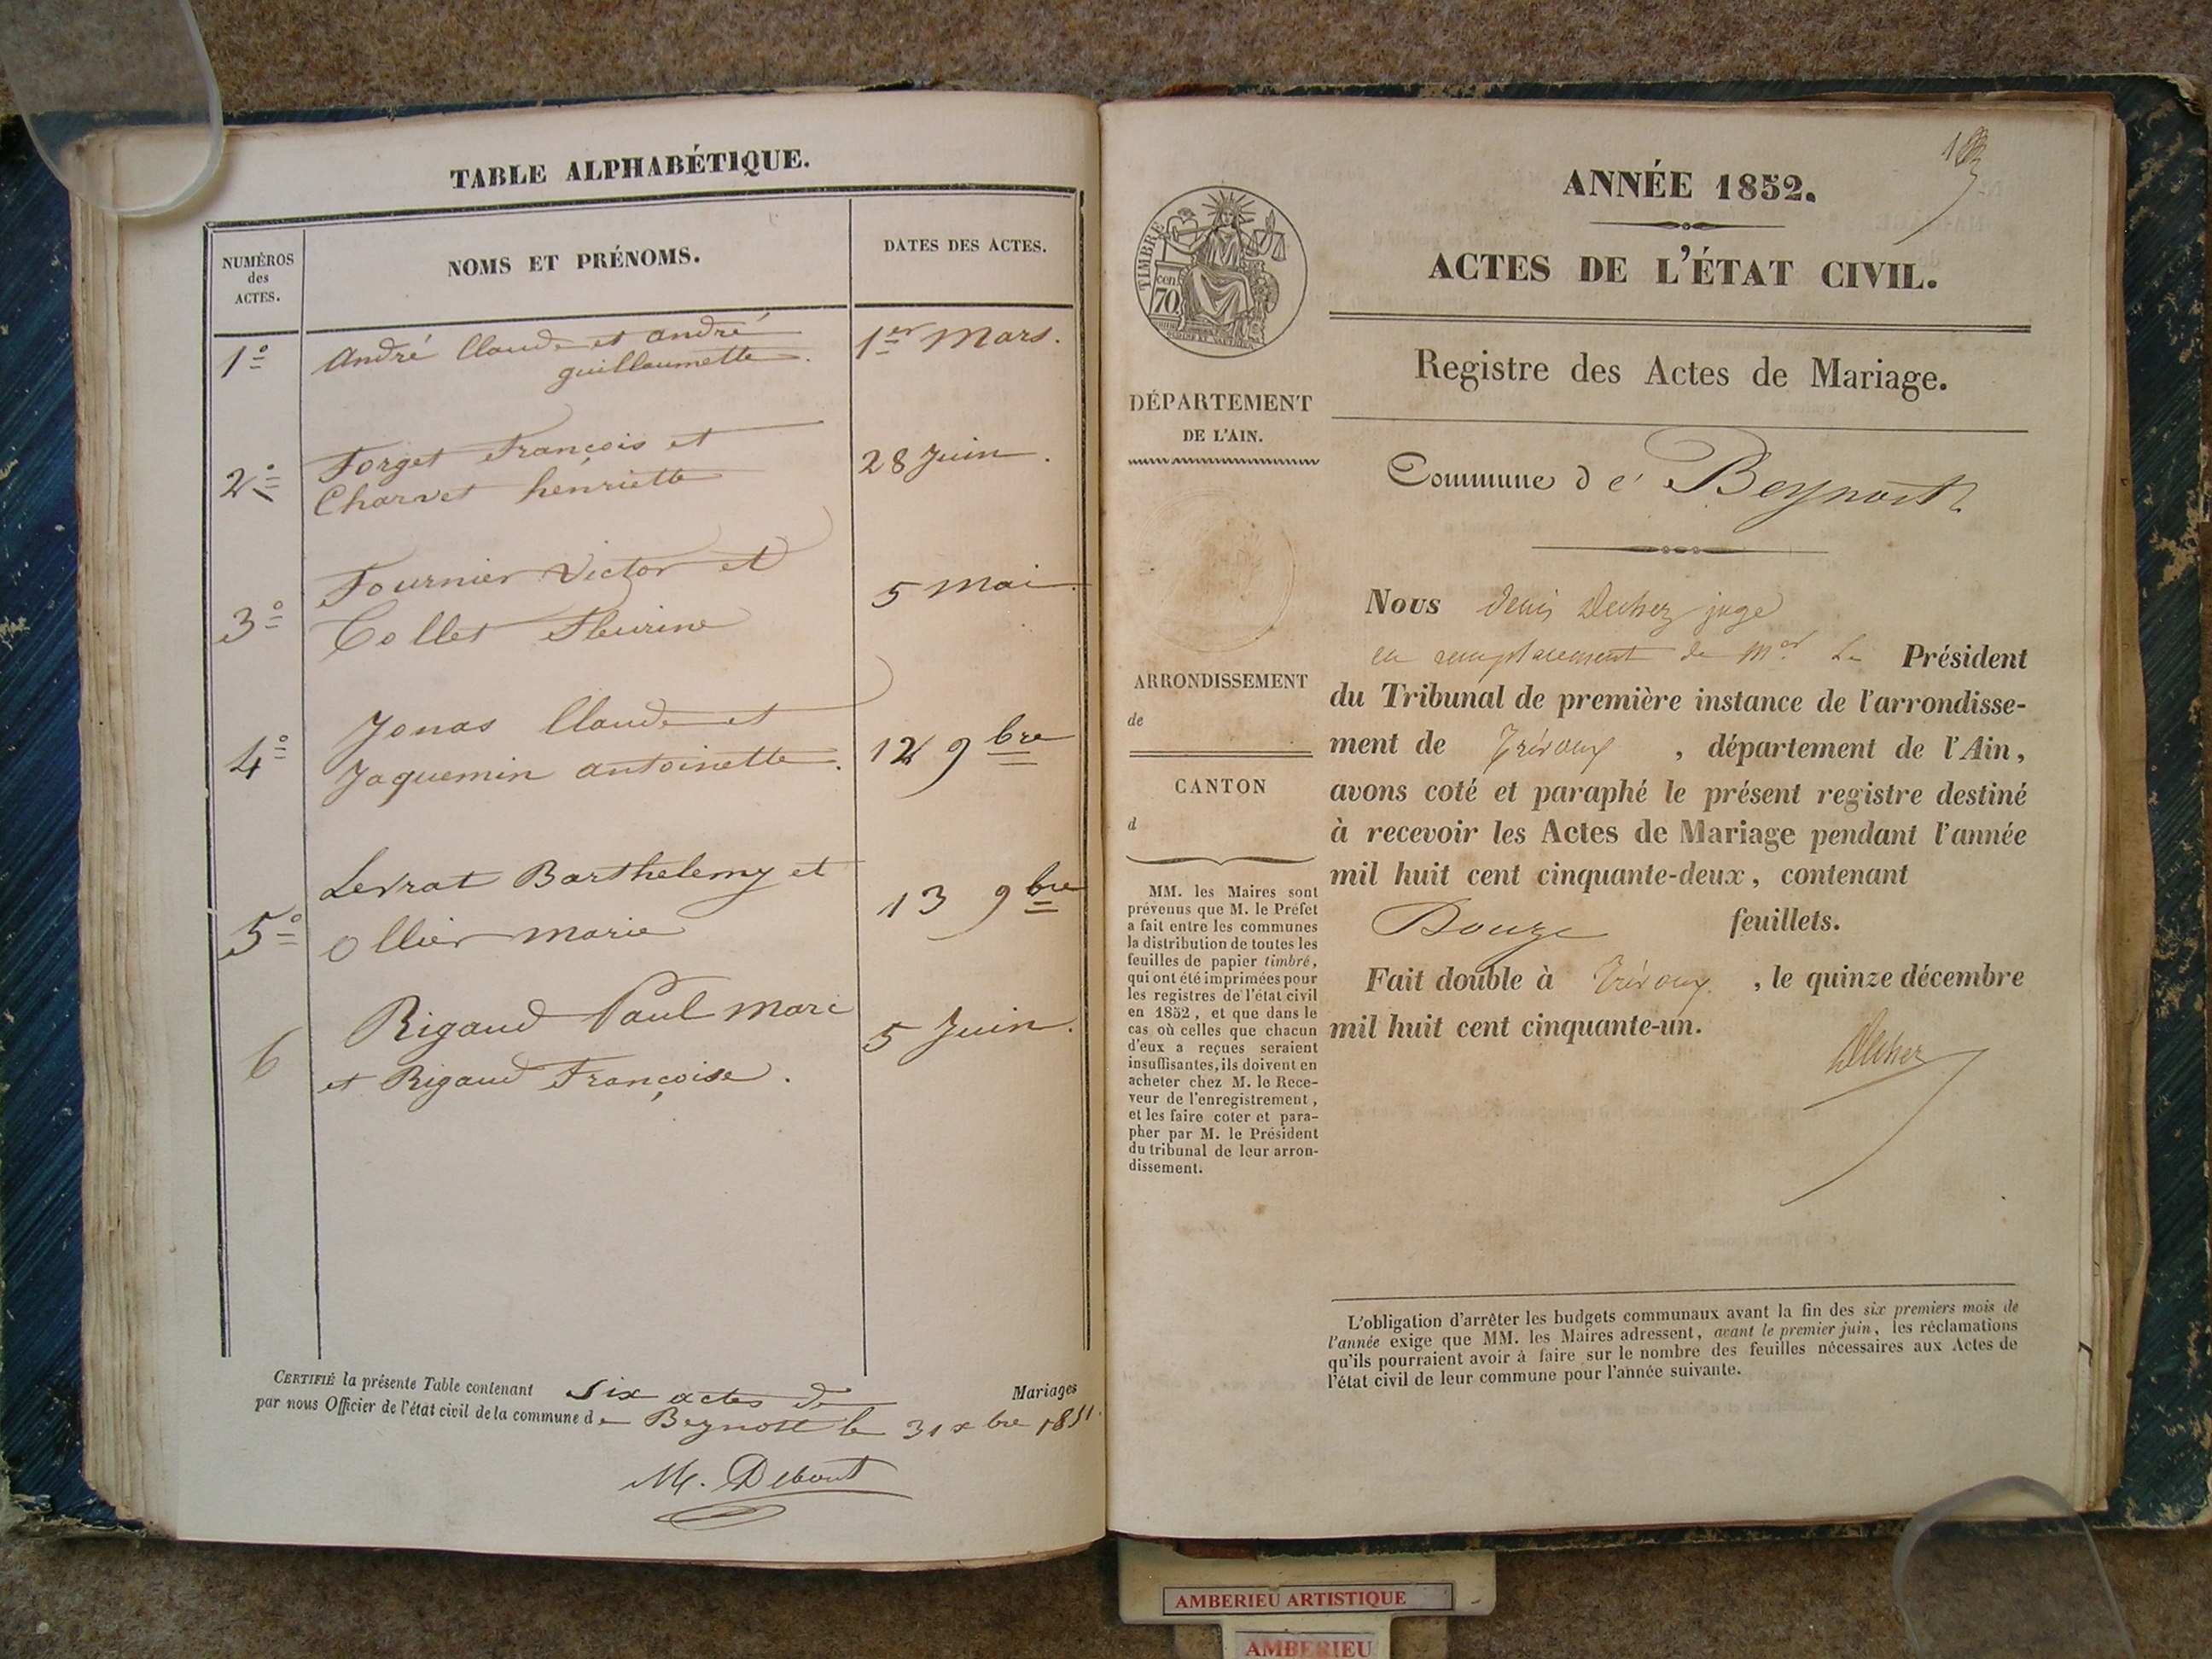 TABLE ALPHABÉTIQUE.
NUMÉROS
des
ACTES.
NOMS ET PRÉNOMS.
DATES DES ACTES.
1º André Claude et André 1er Mars.
guillaumette.
2º Forget François et 28 Juin.
Charvet henriette
3º Fournier Victor et 5 Mai.
Collet Fleurine
4º Jonas Claude et 12 9bre
Jaquemin antoinette.
5º Levrat Barthelemy et 13 9bre
Ollier marie
6 Rigaud Paul Marc 5 Juin.
et Rigaud Françoise.
CERTIFIÉ la présente Table contenant six actes de Mariages
par nous Officier de l'état civil de la commune de Beynost le 31 xbre 1851.
M. Debout
ANNÉE 1852.
ACTES DE L'ÉTAT CIVIL.
Registre des Actes de Mariage.
TIMBRE
cen
70
DÉPARTEMENT
DE L'AIN.
ARRONDISSEMENT
de
CANTON
d
MM. les Maires sont
prévenus que M. le Préfet
a fait entre les communes
la distribution de toutes les
feuilles de papier timbré,
qui ont été imprimées pour
les registres de l'état civil
en 1852, et que dans le
cas où celles que chacun
d'eux a reçues seraient
insuffisantes, ils doivent en
acheter chez M. le Rece-
veur de l'enregistrement,
et les faire coter et para-
pher par M. le Président
du tribunal de leur arron-
dissement.
Commune de Beynost
Nous denis juge
en remplacement de Mor Le Président
du Tribunal de première instance de l'arrondisse-
ment de Trévoux, département de l'Ain,
avons coté et paraphé le présent registre destiné
à recevoir les Actes de Mariage pendant l'année
mil huit cent cinquante-deux, contenant
Douze feuillets.
Fait double à Trévoux, le quinze décembre
mil huit cent cinquante-un.
L'obligation d'arrêter les budgets communaux avant la fin des six premiers mois de
l'année exige que MM. les Maires adressent, avant le premier juin, les réclamations
qu'ils pourraient avoir à faire sur le nombre des feuilles nécessaires aux Actes de
l'état civil de leur commune pour l'année suivante.
AMBERIEU ARTISTIQUE
AMBERIEU